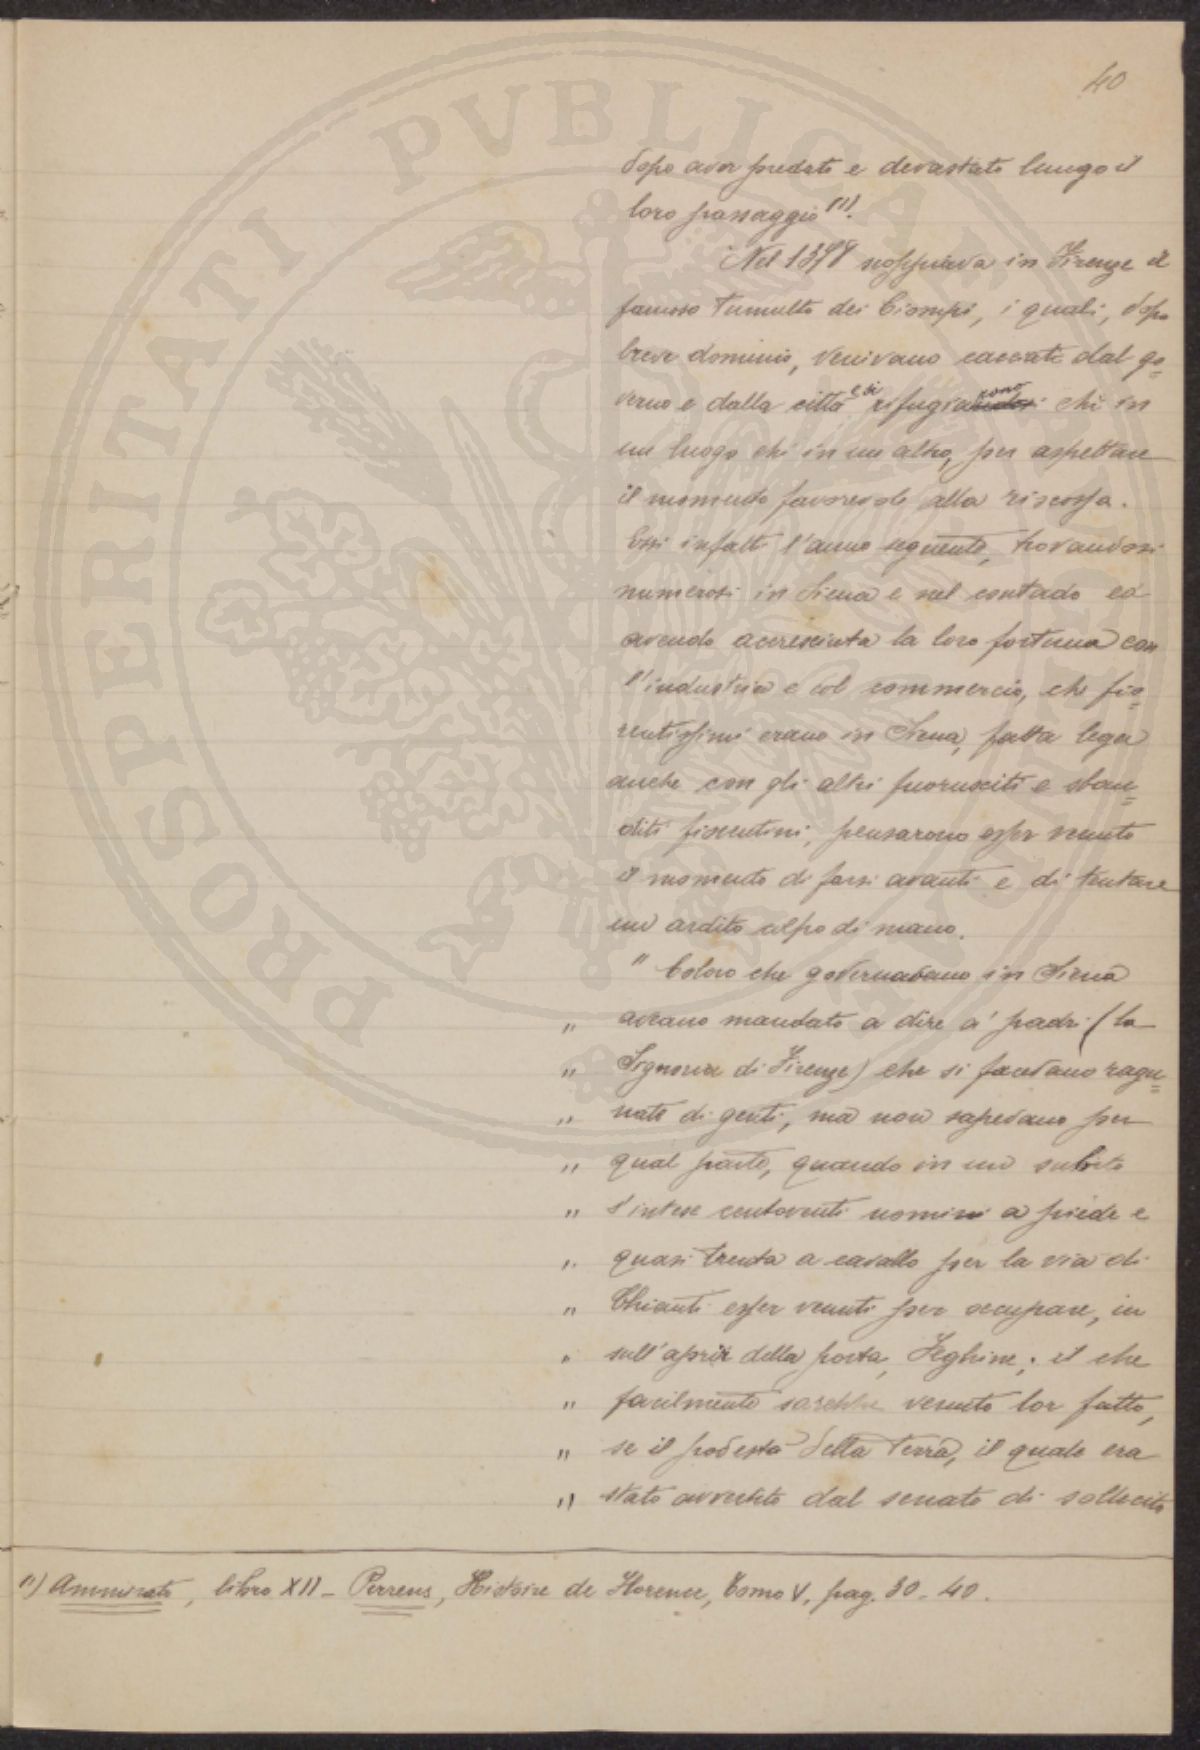 40
dopo aver predato e devastato lungo il
loro passaggio (1).
Nel 1378 scoppiava in Firenze il
famoso tumulto dei Ciompi, i quali, dopo
breve dominio, venivano cacciati dal go=
verno e dalla città e si rifugiarono chi in
un luogo chi in un altro, per aspettare
il momento favorevole alla riscossa.
Essi infatti l'anno seguente, trovandosi
numerosi in Siena e nel contado ed
avendo accresciuta la loro fortuna con
l'industria e col commercio, che fio=
rentissimi erano in Siena, fatta lega
anche con gli altri fuorusciti e sban=
diti fiorentini, pensarono esser venuto
il momento di farsi avanti e di tentare
un ardito colpo di mano.
" Coloro che governavano in Siena
" aveano mandato a dire a' padri (la
" Signoria di Firenze) che si facevano ragu=
" nate di genti, ma non sapevano per
" qual parte, quando in un subito
" s'intese centoventi uomini a piede e
" quasi trenta a cavallo per la via di
" Chianti esser venuti per occupare, in
" sull'aprir della porta, Feghine; il che
" facilmente sarebbe venuto lor fatto,
" se il podestà della terra, il quale era
" stato avvertito dal senato di sollecito
(1) Ammirato, libro XII - Perrens, Histoire de Florence, Tomo V, pag. 30-40.
PROSPERITATI PVBLICAE